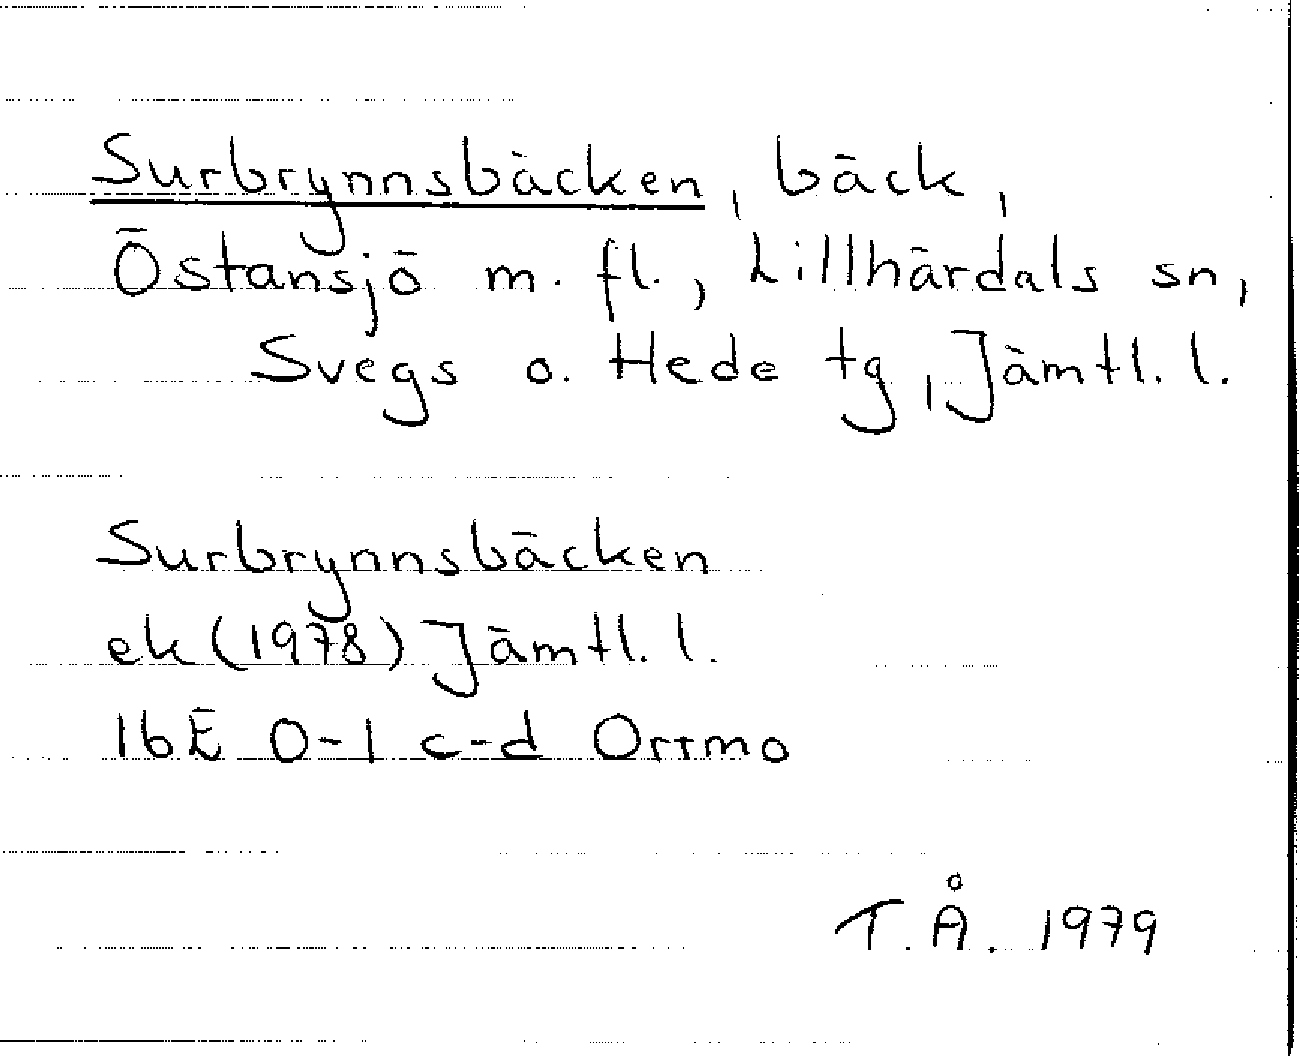 Surbrynnsbäcken, bäck,
Östansjö m. fl., Lillhärdals sn,
Svegs o. Hede tg, Jämtl. l.
Surbrynnsbäcken
ek (1978) Jämtl. l.
16E 0-1 c-d Orrmo
T. Å. 1979